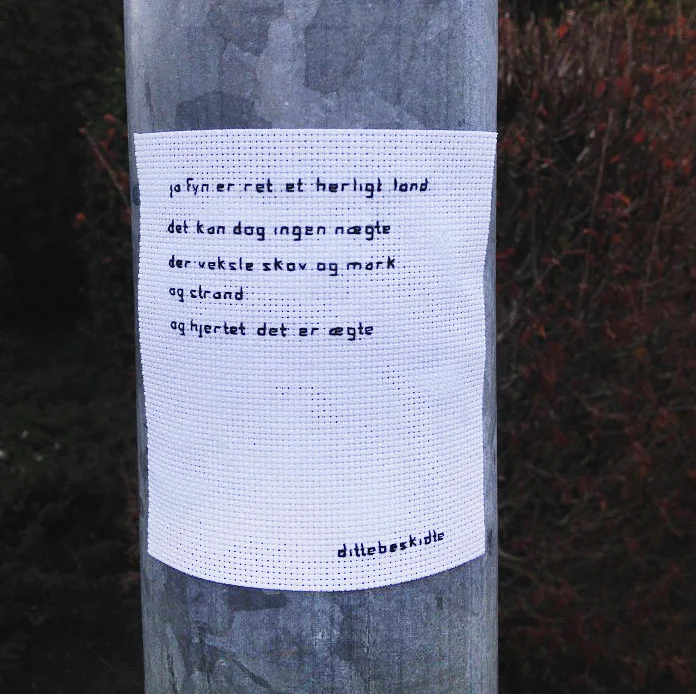 ja fyn er ret et herligt land
det kan dog ingen nægte
der veksle skov og mark
og strand
og hjertet det er ægte
dittebeskidte